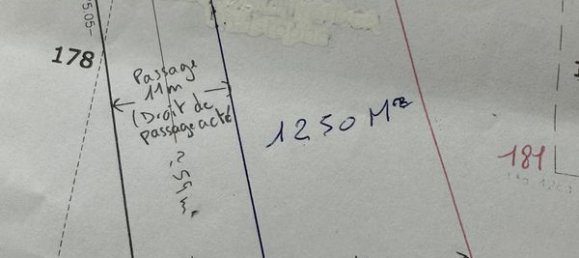 5.05-
178
Passage
11m
(Droit de
passage acté
1250 M²
181